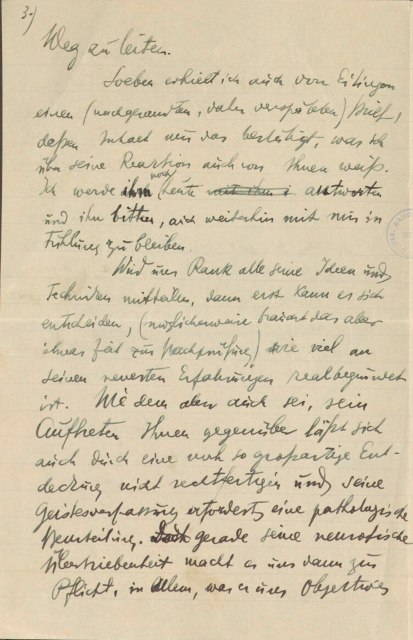 3.)
Weg zu leiten.
Soeben erhielt ich auch von Eitingon
einen (nachgesandten, daher verspäteten) Brief,
dessen Inhalt nur das bestätigt, was ich
über seine Reaktion auch von Ihnen weiß.
Ich werde ihm noch heute antworten
und ihn bitten, auch weiterhin mit mir in
Fühlung zu bleiben.
Wird uns Rank alle seine Ideen und
Techniken mitteilen, dann erst kann es sich
entscheiden, (möglicherweise braucht das aber
etwas Zeit zur Nachprüfung) wie viel an
seinen neuesten Erfahrungen real begründet
ist. Wie dem aber auch sei, sein
Auftreten Ihnen gegenüber läßt sich
auch durch eine noch so großartige Ent-
deckung nicht rechtfertigen und seine
Geistesverfassung erfordert eine pathologische
Beurteilung. gerade seine neurotische
Übertriebenheit macht es uns dann zur
Pflicht, in Allem, was er uns Objectives